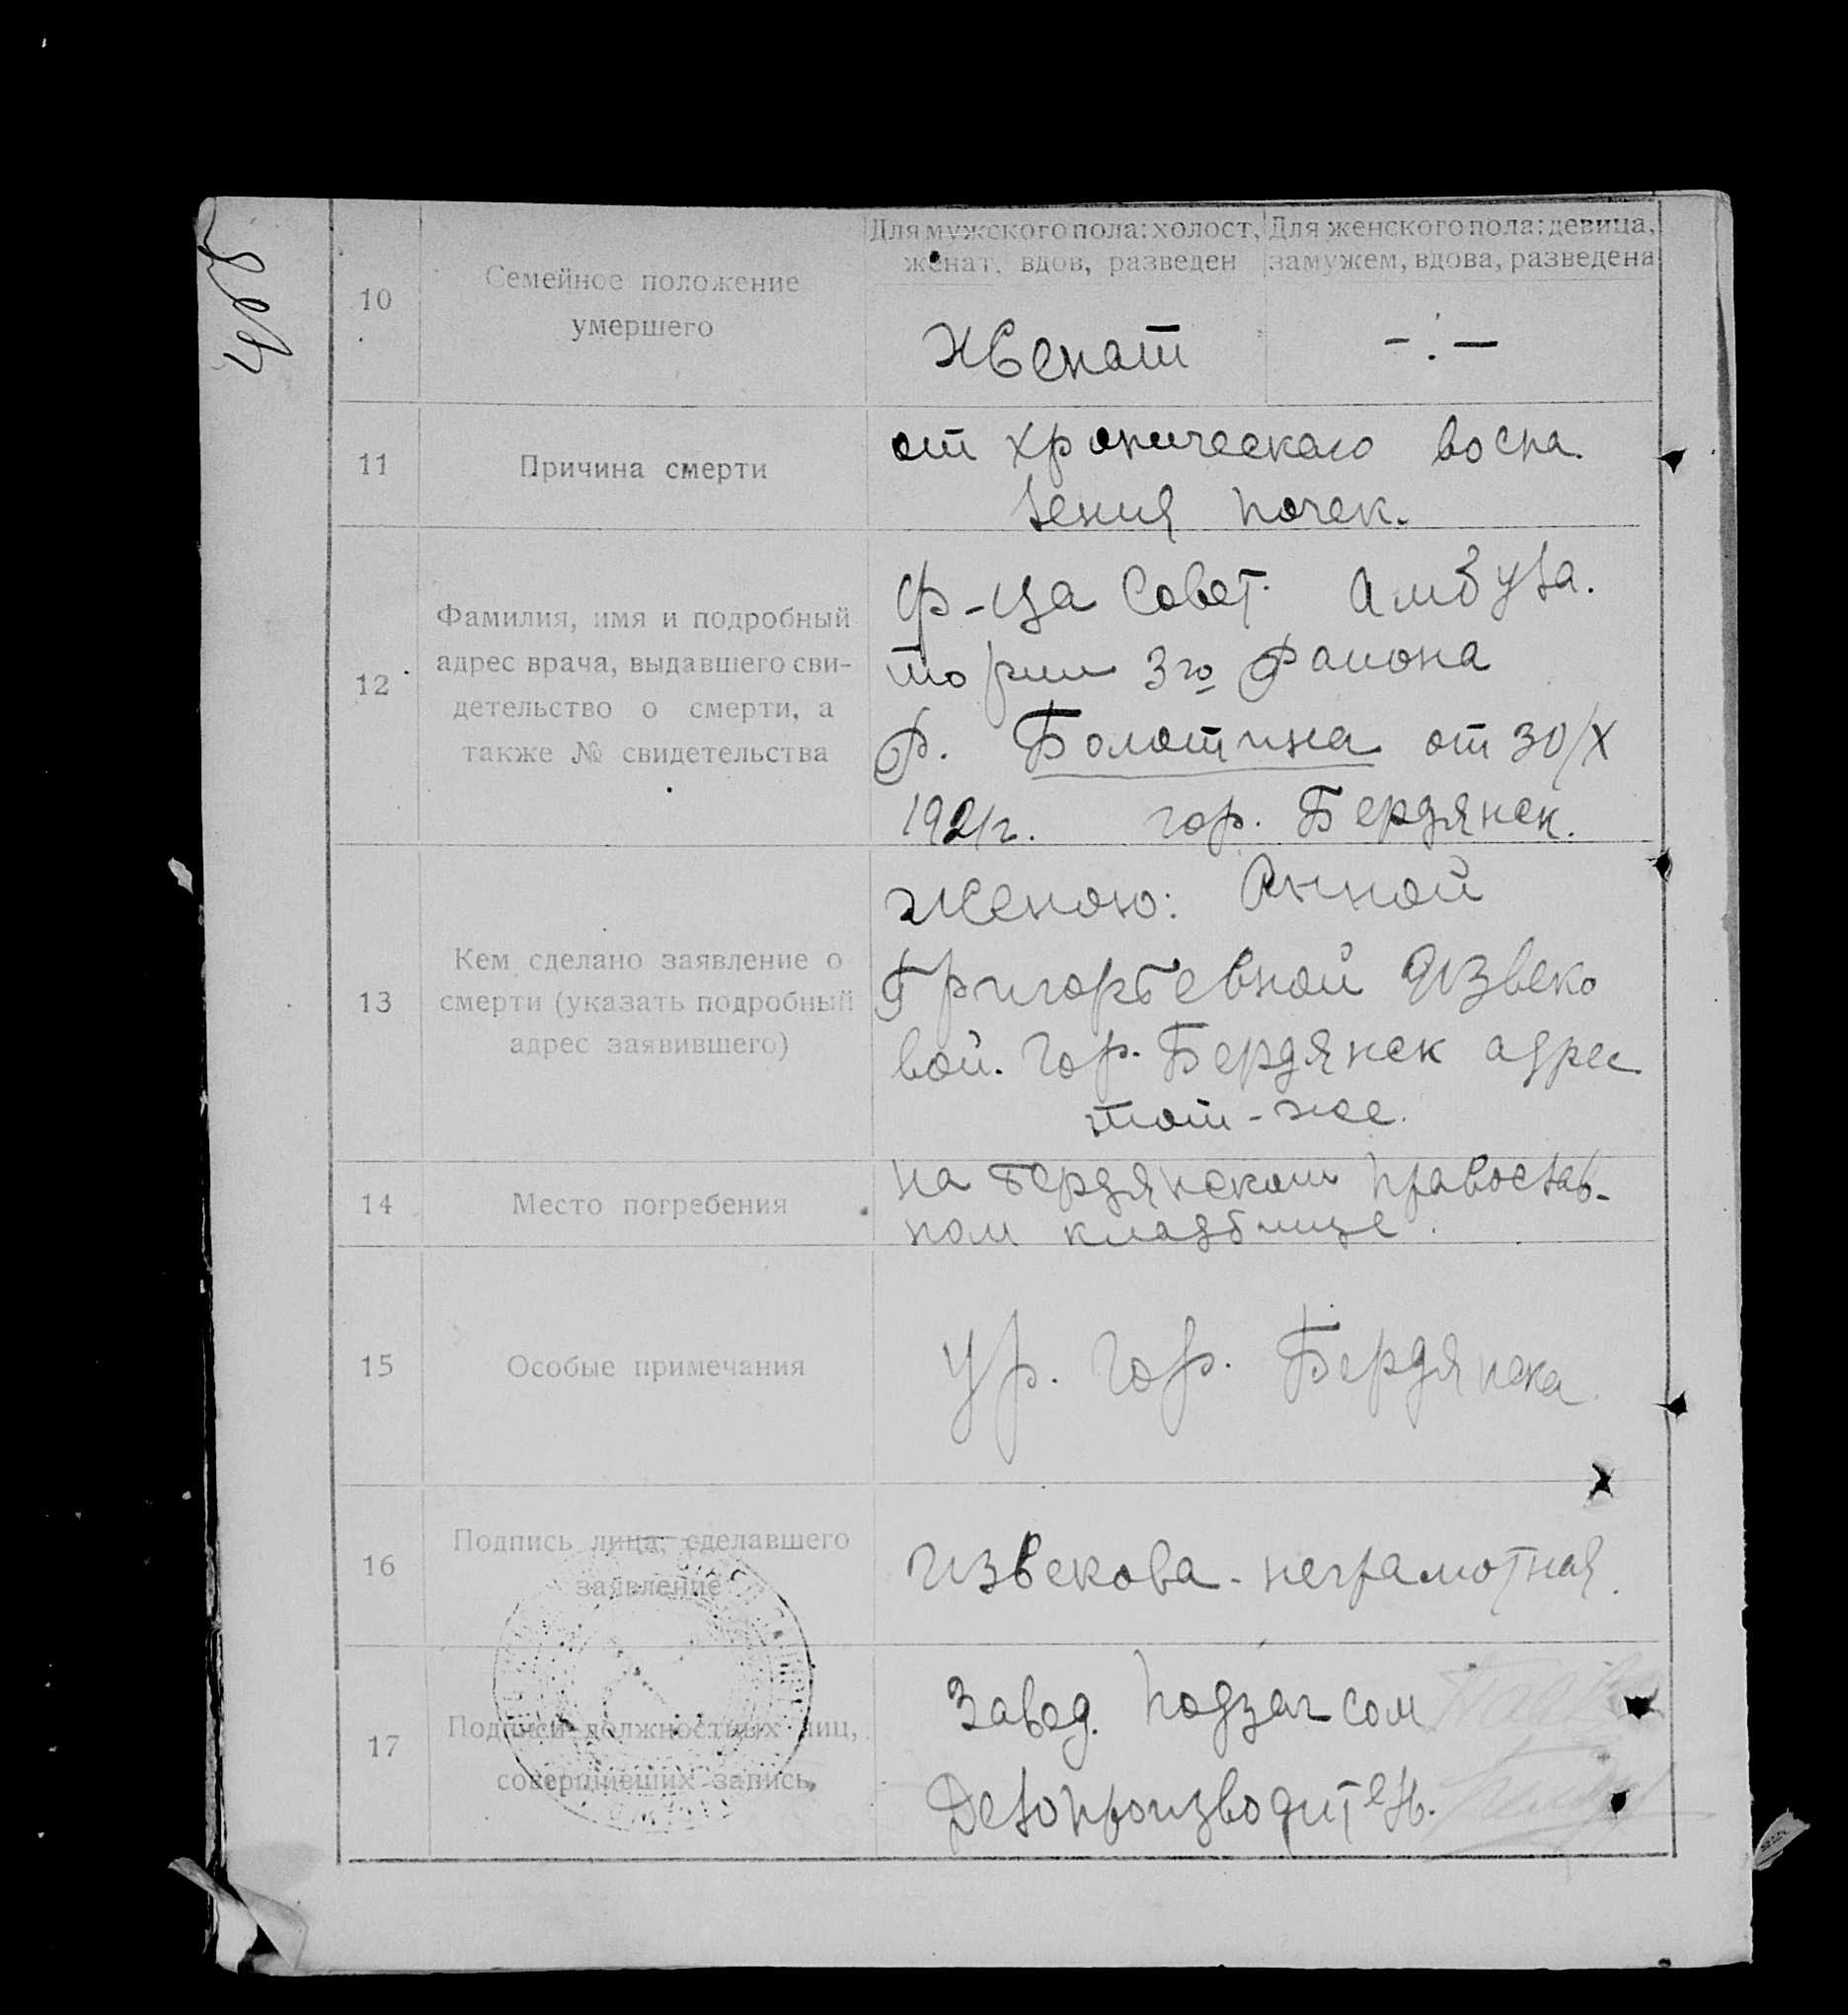 Для мужского пола: холост, женат, вдов, разведен
Для женского пола: девица, замужем, вдова, разведена
10
Семейное положение
умершего
Женат
- . -
11
Причина смерти
от хроническаго воспа.
ления почек.
12
Фамилия, имя и подробный
адрес врача, выдавшего сви-
детельство о смерти, а
также № свидетельства
Ф-ца Совет. Амбула.
тории 3го Района
Ф. Болотина от 30/X
1921г. гор. Бердянск.
13
Кем сделано заявление о
смерти (указать подробный
адрес заявившего)
Женою: Анной
Григорьевной Извеко
вой. Гор. Бердянск адрес
тот-же.
14
Место погребения
на Бердянском православ-
ном кладбище.
15
Особые примечания
Ур. гор. Бердянска.
16
Подпись лица, сделавшего
заявление
Извекова - неграмотная.
17
Подписи должностных лиц,
совершивших запись
Завед. Подзагсом
Делопроизводитель.